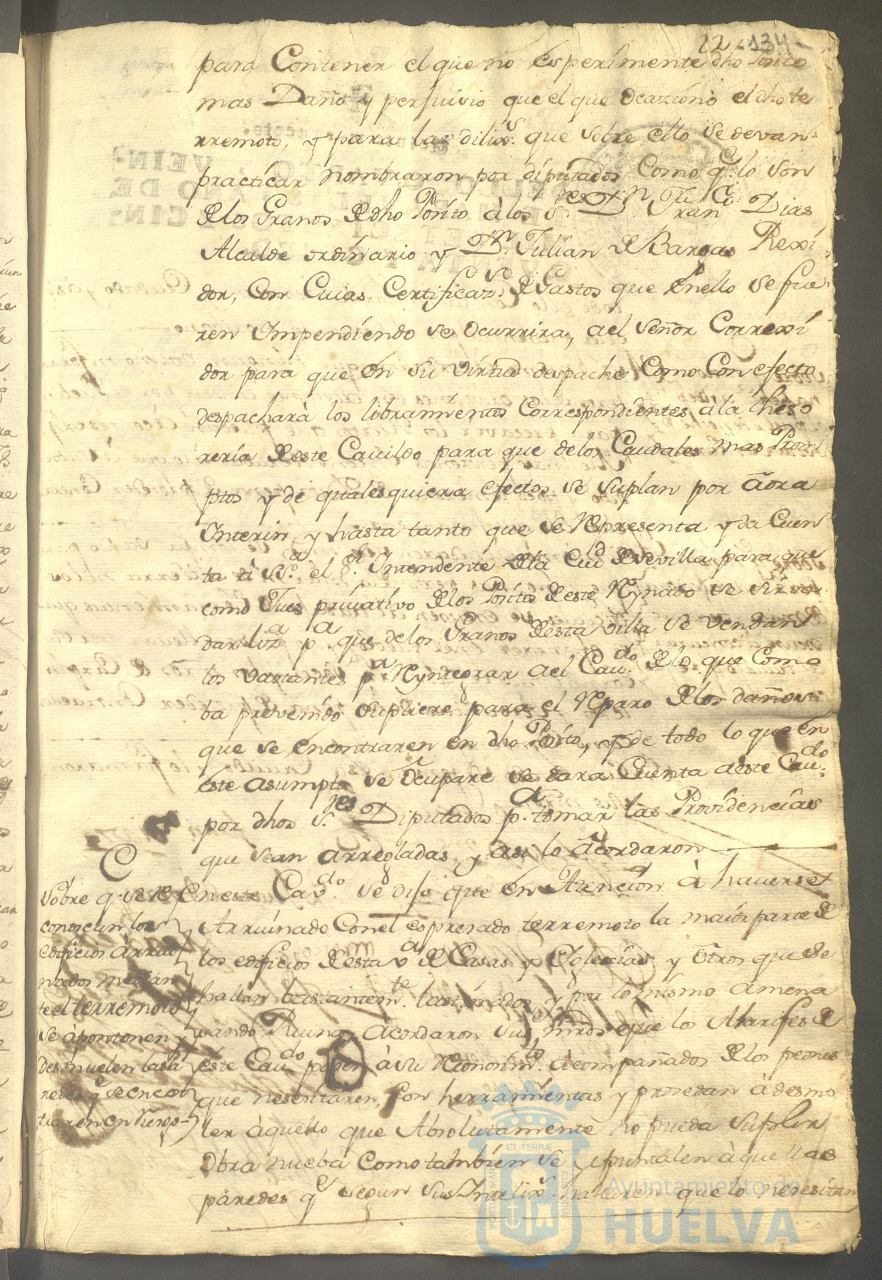 12 - 134 -
para Contener el que no Esperimente dho Posito
mas Daño y perjuisio que el que Ocaziono el dho te
rremoto, y para las dilixs. que sobre ello se devan
practicar nombraron por diputados Como qe. lo son
de los Granos de dho Posito à los Sres. Dn. Franco. Dias
Alcalde ordinario y Dn. Julian de Bargas Rexi
dor, Con Cuias Certificazs. de Gastos que en ello se fue
ren Impendiendo se Ocurrira, ael Señor Correxi
dor para que en su virtud despache Como Con efecto
despachará los libramientos Correspondientes ala theso
reria de este Cavildo para que delos Caudales mas Prom
ptos y de quales quiera efectos se suplan por aõra
Interin, y hasta tanto que se Representa y da Cuen
ta à Sa. el Sr. Intendente de la Ciud. de Sevilla para que
como Jues privativo de los Positos de este Reynado se sirva
dar lixa. pa. que delos Granos de esta villa se vendan
los vastantes pa. Reyntegrar ael Cavdo. de lo que Como
ba prevenido supliere para el Reparo de los daños
que se encontraren en dho Posito, y de todo lo que en
este asumpto se Ocupare se dara Cuenta a este Cavdo.
por dhos Sres. Diputados pa. tomar las Providencias
que sean arregladas, y asi lo acordaron
C
Sobre q. se re
conoscan los
edificios arrui
nados median
te el terremoto
se apontonen y
desmuelen las pa
redes qe. se encon
traren en Riesgo
En este Cavdo. se dijo que en Atencion à haverse
Arruinado Con el espresado terremoto la maior parte de
los edificios de esta va. de Casas y Eglecias, y Otros que se
hallan bastantemte. lastimados y por lo mismo amena
zando Ruina, acordaron sus mrds. que lo Alarifes de
este Cavdo. pasen à su Reconosimto. acompañados de los peones
que nesesitaren, con herramientas y prosedan à desmo
ler àquello que Absolutamente no pueda suplir
Obra nueba Como tambien se apuntalen àquellas
paredes qe. segun sus Intelixs. hallaren que lo nesesitan
Ayuntamiento de
HUELVA